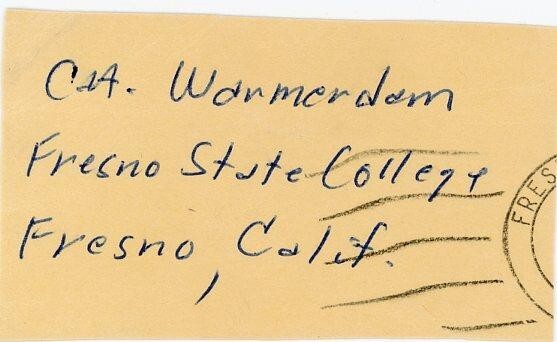 CA. Warmerdam
Fresno State College
Fresno, Calif.
FRES